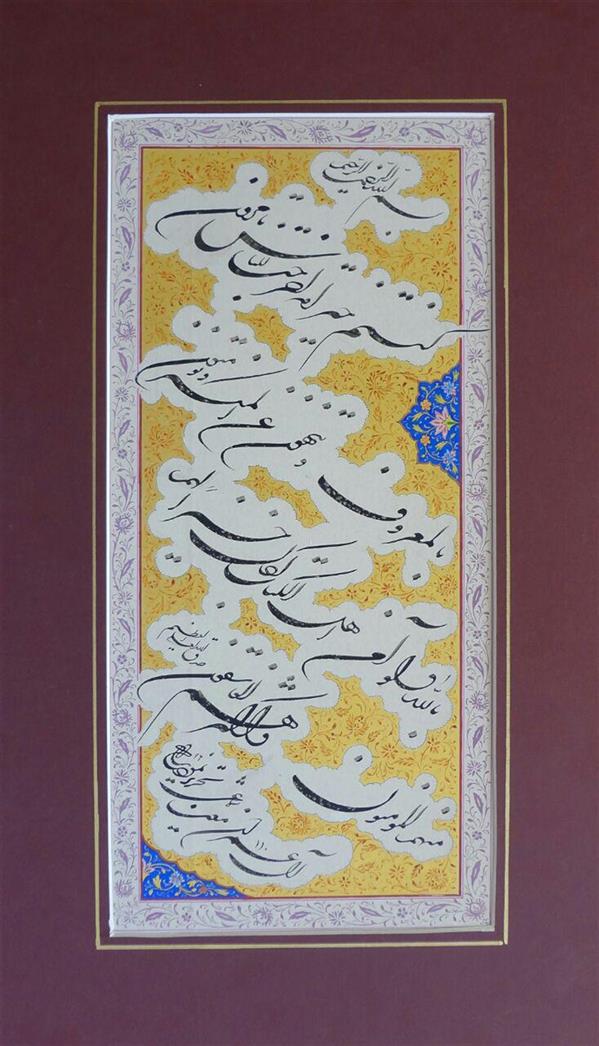 بسم الله الرحمن الرحیم
کنتم خیر امة اخرجت للناس تأمرون
بالمعروف و تنهون عن المنکر و تؤمنون
بالله ولو آمن اهل الکتاب لکان خیرا لهم
منهم المؤمنون و اکثرهم الفاسقون
صدق الله العلی العظیم